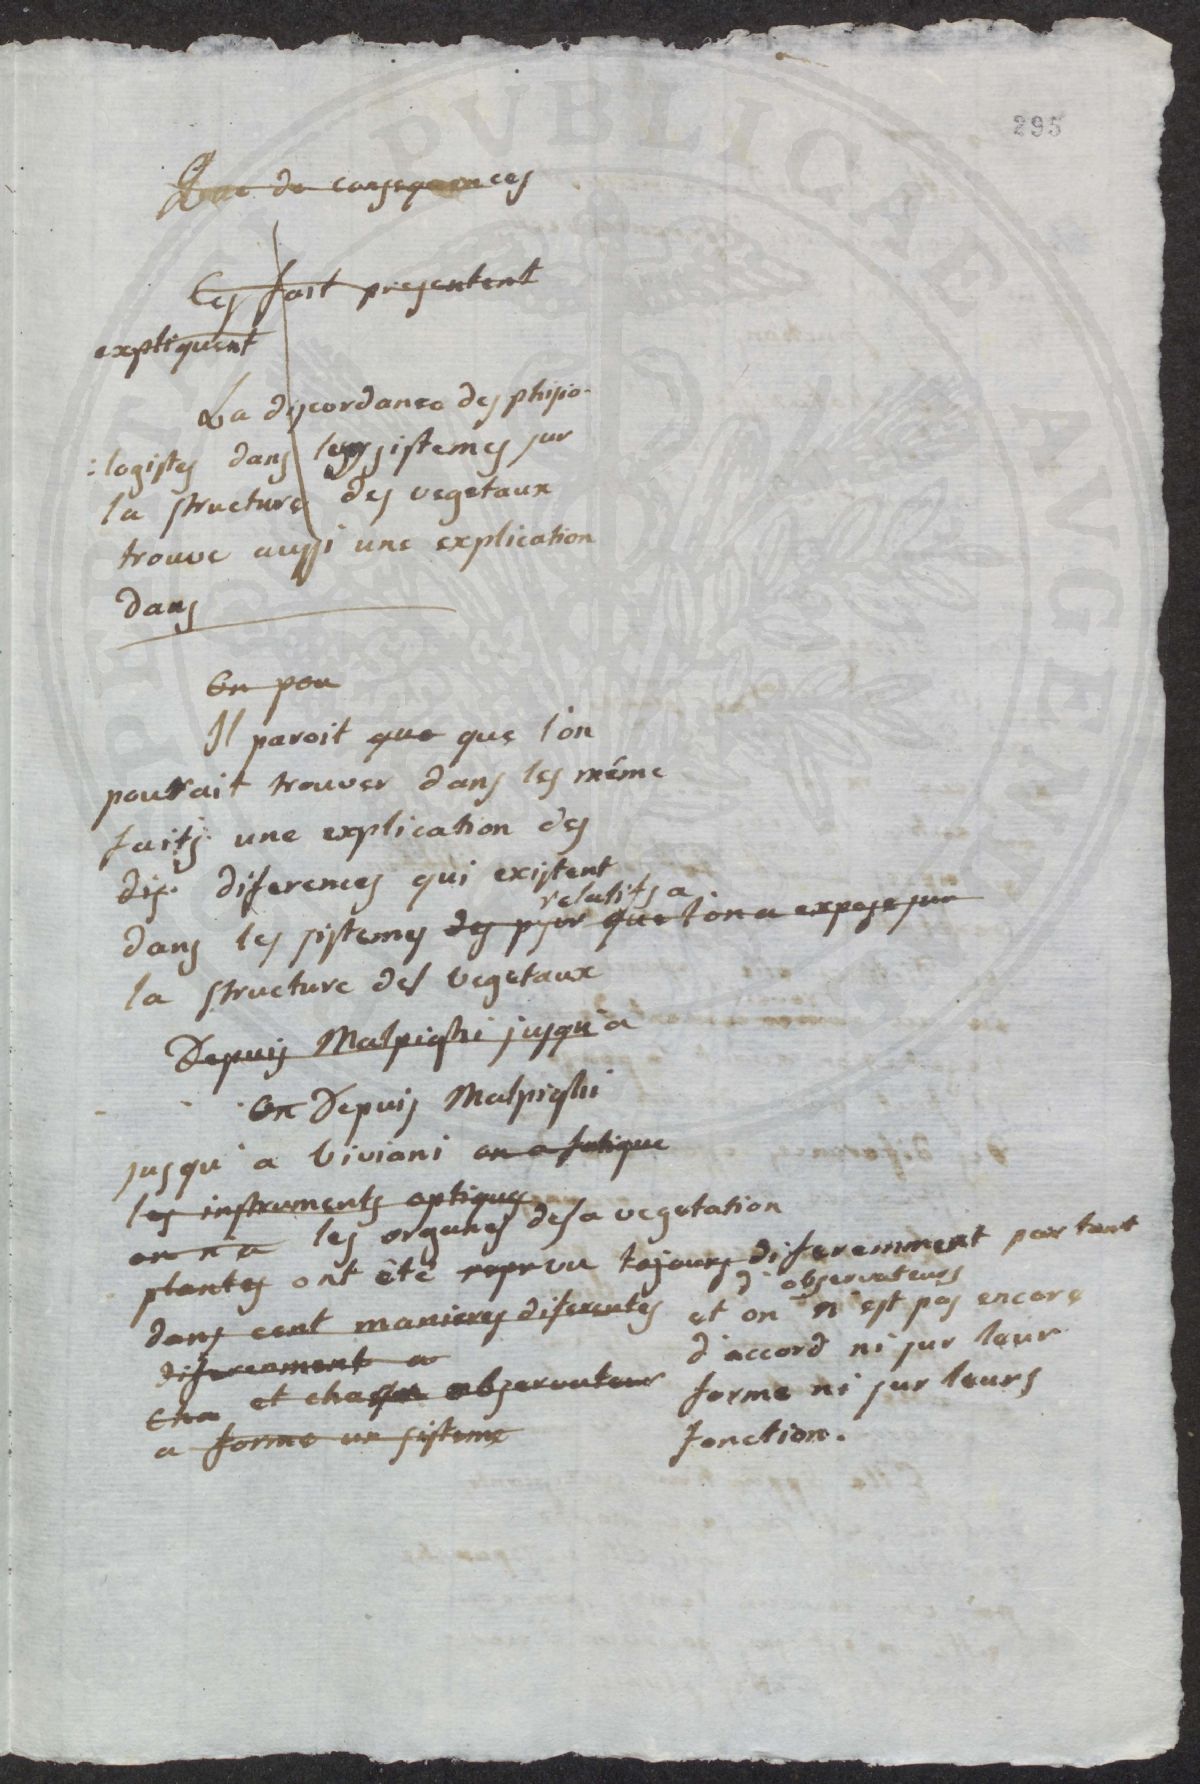 295
Que de consequences
Ces fait presentent
expliquent
La discordance des phisio-
:logistes dans les sistemes sur
la structure des vegetaux
trouve aussi une explication
dans
On peu
Il paroit que que l'on
pourait trouver dans les même
faits une explication des
dif. diferences qui existent
relatifs a
dans les sistemes des que l'on a expose sur
la structure des vegetaux
Depuis Malpighi jusqu'a
On Depuis Malpighi
jusqu'a Viviani on a fatigue
les instruments optiques
on n'a les organes de la vegetation
plantes ont été vu tojours diferemment par tant
d'observateurs
dans cent manieres diferentes et on n'est pas encore
diferemment a d'accord ni sur leur
Cha et chaqun observateur forme ni sur leurs
a forme un sisteme fonction.